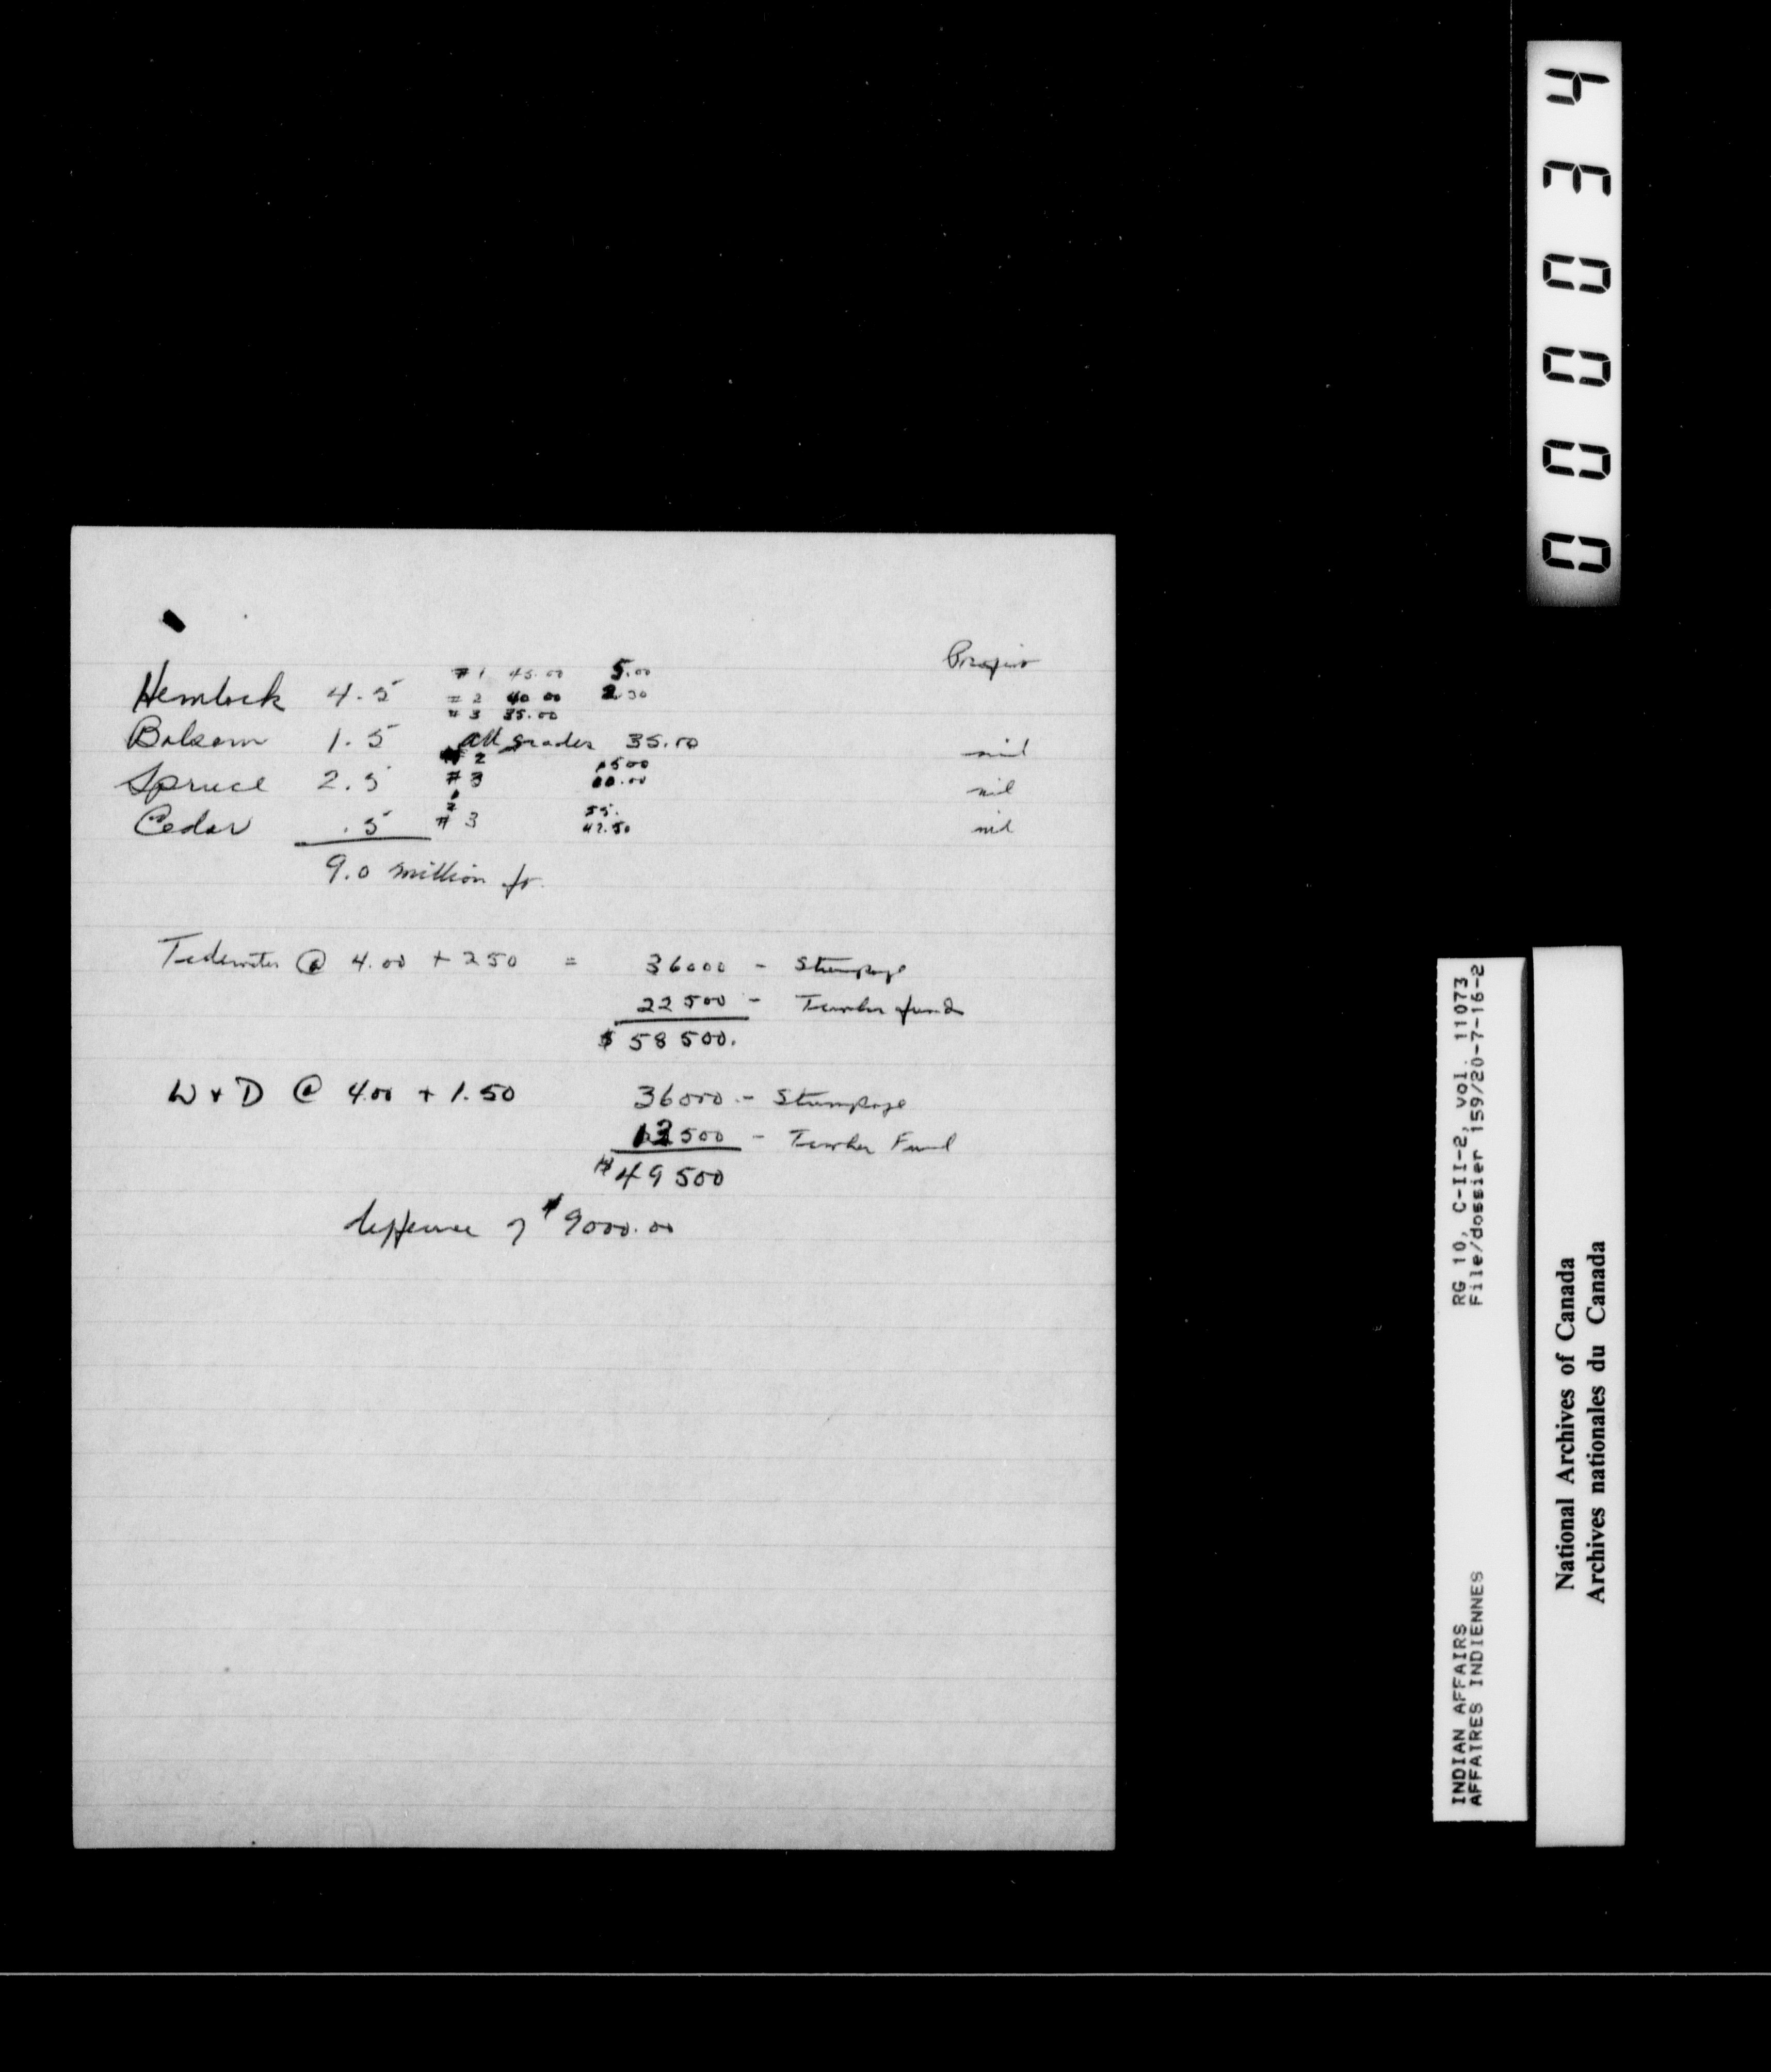 Profit
#1 45.00 5.00
Hemlock 4.5 #2 40 00 2.50
#3 35.00
Balsam 1.5 all grades 35.00 nil
#2
Spruce 2.5 #3 60.00 nil
2 55.
Cedar .5 #3 42.50 nil
9.0 million ft.
Tidewater @ 4.00 + 250 = 36000 - Stumpage
22500 - Timber fund
$ 58500.
W + D @ 4.00 + 1.50 36000 - Stumpage
13500 - Timber Fund
$49500
difference of $9000.00
430000
RG 10, C-II-2, vol. 11073
File/dossier 159/20-7-16-2
INDIAN AFFAIRS
AFFAIRES INDIENNES
National Archives of Canada
Archives nationales du Canada